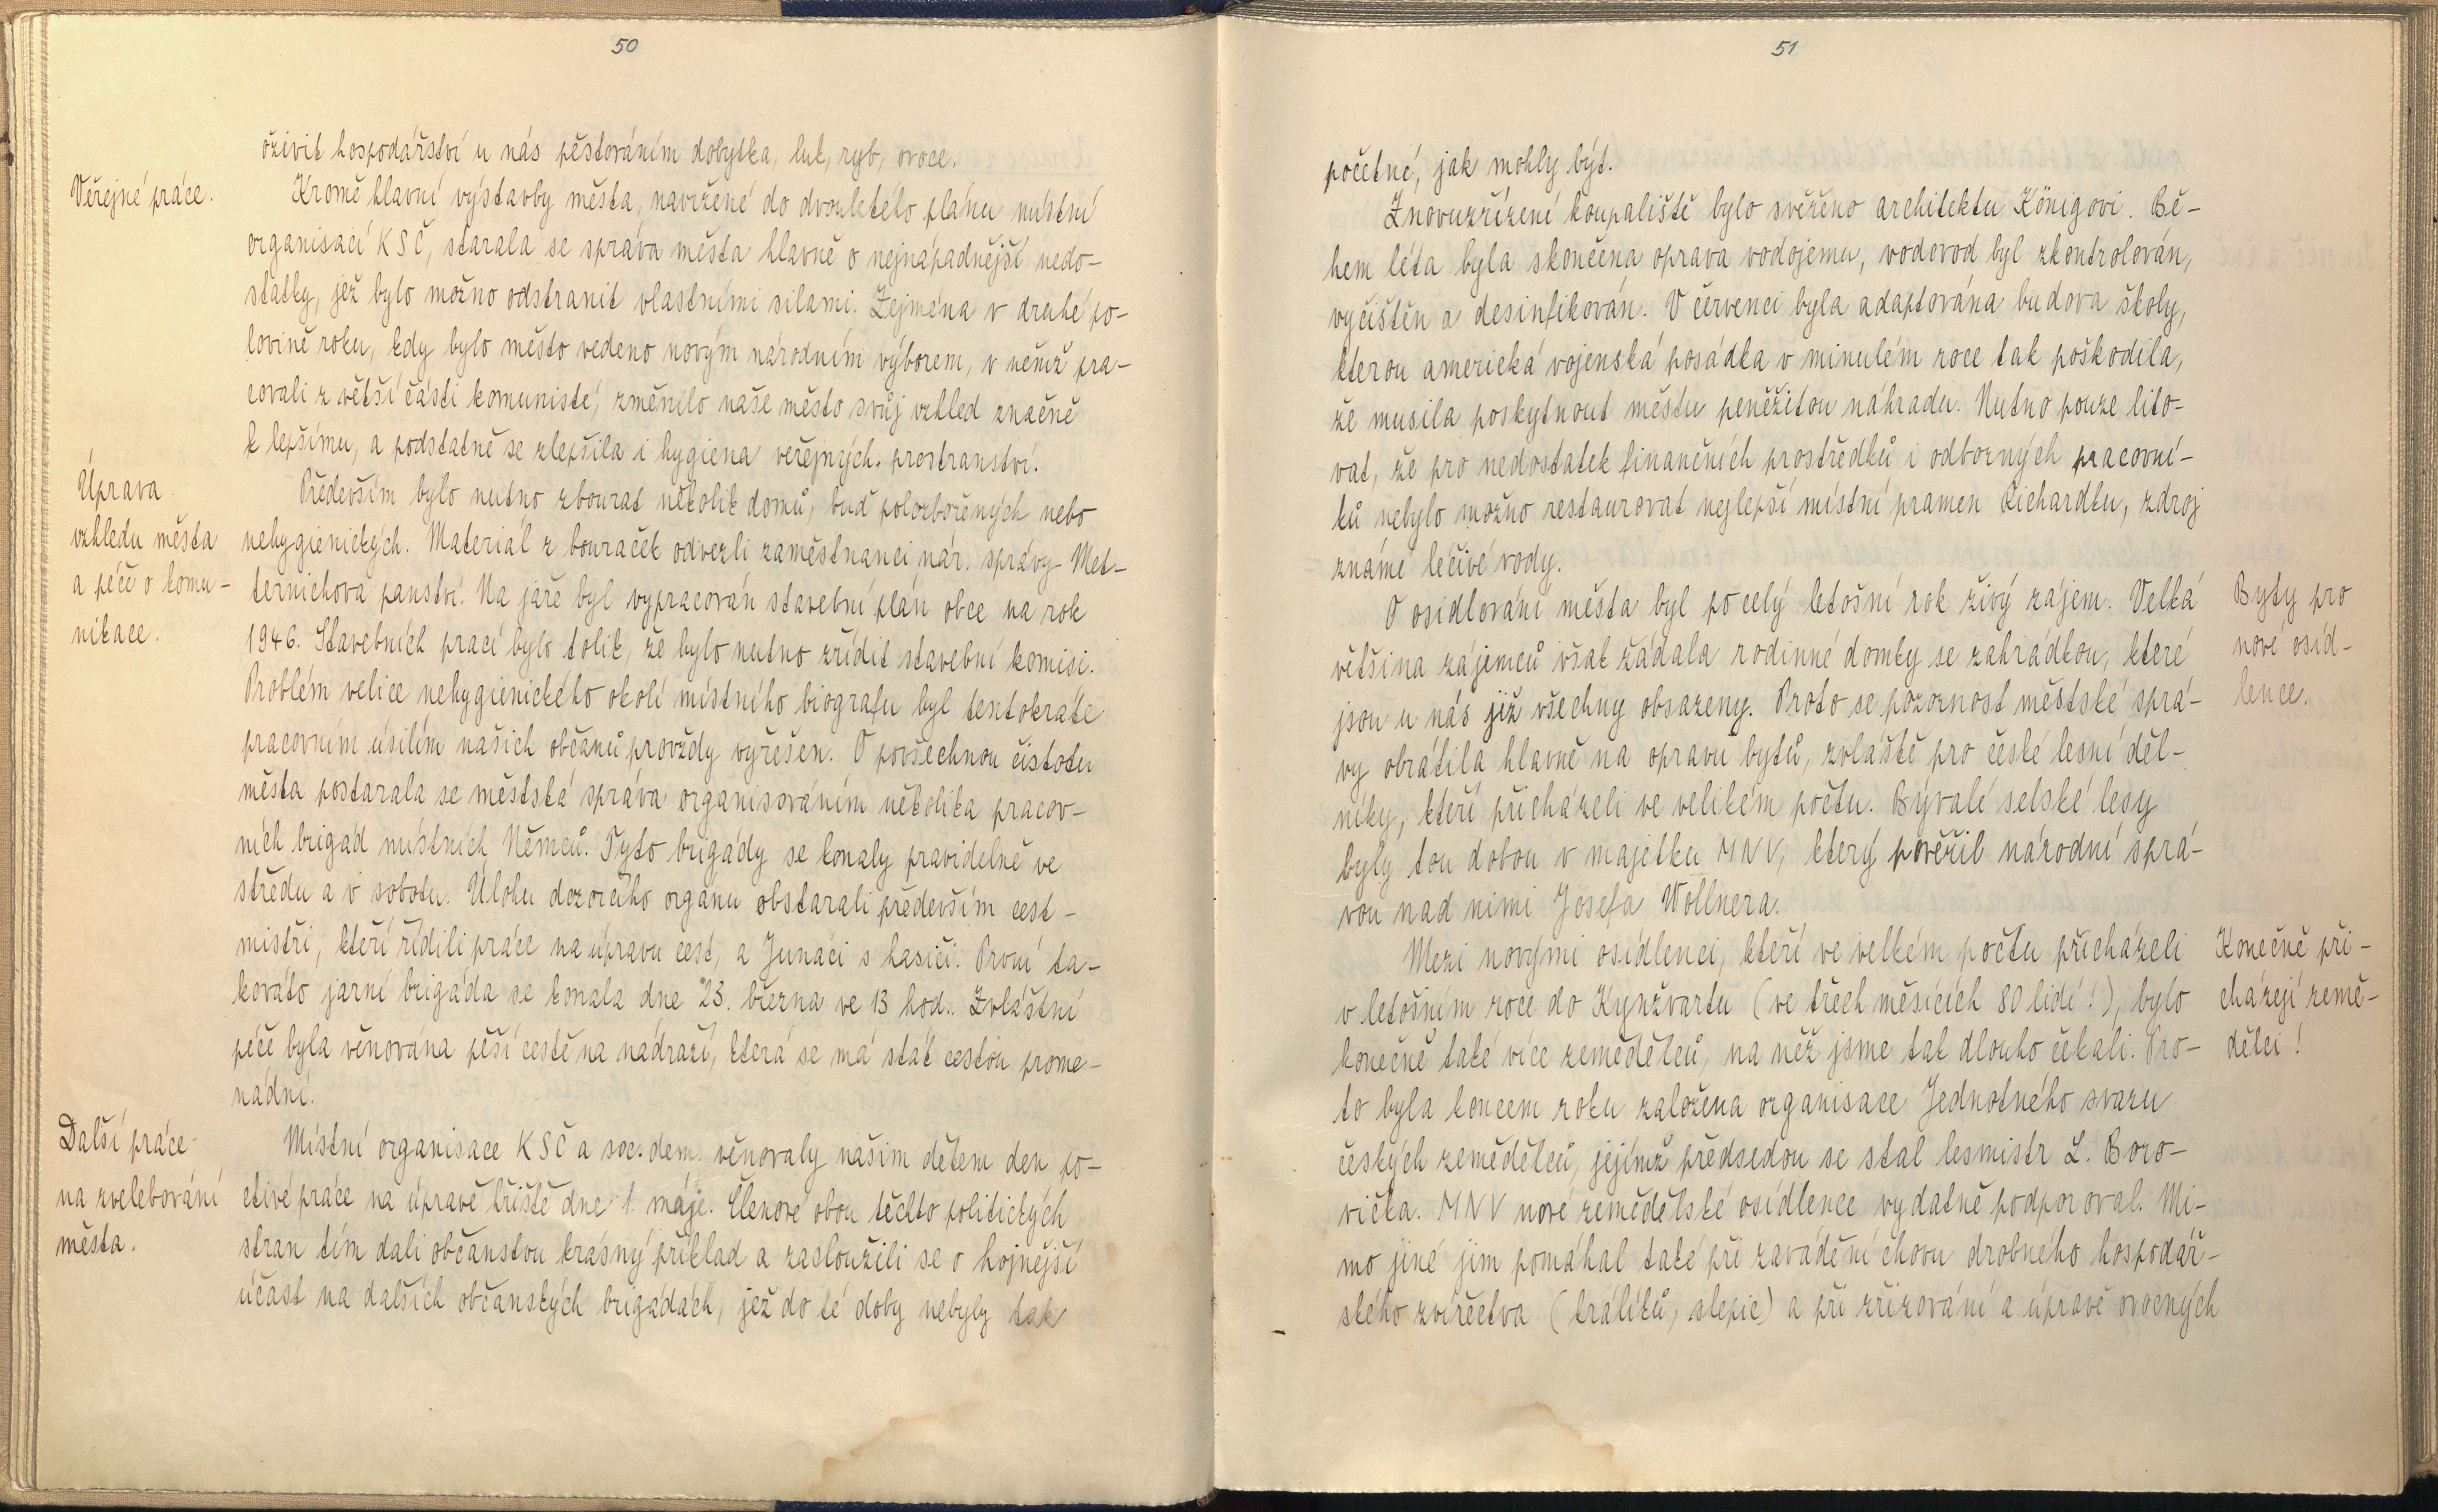 50
oživit hospodářství u nás pěstováním dobytka, luk, ryb, ovoce.
Veřejné práce.
Kromě hlavní výstavby města, navržené do dvouletého plánu místní
organisací KSČ, starala se správa města hlavně o nejnápadnější nedo-
statky, jež bylo možno odstranit vlastními silami. Zejména v druhé po-
lovině roku, kdy bylo město vedeno novým národním výborem, v němž pra-
covali z větší části komunisté, změnilo naše město svůj vzhled značně
k lepšímu, a podstatně se zlepšila i hygiena veřejných prostranství.
Úprava
vzhledu města
a péče o komu-
nikace.
Především bylo nutno zbourat několik domů, buď polozbořených nebo
nehygienických. Materiál z bouraček odvezli zaměstnanci nár. správy Met-
ternichova panství. Na jaře byl vypracován stavební plán obce na rok
1946. Stavebních prací bylo tolik, že bylo nutno zřídit stavební komisi.
Problém velice nehygienického okolí místního biografu byl tentokráte
pracovním úsilím našich občanů provždy vyřešen. O povšechnou čistotu
města postarala se městská správa organisováním několika pracov-
ních brigád místních Němců. Tyto brigády se konaly pravidelně ve
středu a v sobotu. Úlohu dozorčího orgánu obstarali především cest-
mistři, kteří řídili práce na úpravu cest, a Junáci s hasiči. První ta-
kováto jarní brigáda se konala dne 23. března ve 13 hod.. Zvláštní
péče byla věnována pěší cestě na nádraží, která se má stát cestou prome-
nádní.
Další práce
na zvelebování
města.
Místní organisace KSČ a soc. dem. věnovaly našim dětem den po-
ctivé práce na úpravě hřiště dne 1. máje. Členové obou těchto politických
stran tím dali občanstvu krásný příklad a zasloužili se o hojnější
účast na dalších občanských brigádách, jež do té doby nebyly tak
51
početné, jak mohly být.
Znovuzřízení koupaliště bylo svěřeno architektu Königovi. Bě-
hem léta byla skončena oprava vodojemu, vodovod byl zkontrolován,
vyčištěn a desinfikován. V červenci byla adaptována budova školy,
kterou americká vojenská posádka v minulém roce tak poškodila,
že musila poskytnout městu peněžitou náhradu. Nutno pouze lito-
vat, že pro nedostatek finančních prostředků i odborných pracovní-
ků nebylo možno restaurovat nejlepší místní pramen Richardku, zdroj
známé léčivé vody.
Byty pro
nové osíd-
lence.
O osidlování města byl po celý letošní rok živý zájem. Velká
většina zájemců však žádala rodinné domky se zahrádkou, které
jsou u nás již všechny obsazeny. Proto se pozornost městské sprá-
vy obrátila hlavně na opravu bytů, zvláště pro české lesní děl-
níky, kteří přicházeli ve velikém počtu. Bývalé selské lesy
byly tou dobou v majetku MNV, který pověřil národní sprá-
vou nad nimi Josefa Wöllnera.
Konečně při-
cházejí země-
dělci!
Mezi novými osídlenci, kteří ve velkém počtu přicházeli
v letošním roce do Kynžvartu (ve třech měsících 80 lidí!), bylo
konečně také více zemědělců, na něž jsme tak dlouho čekali. Pro-
to byla koncem roku založena organisace Jednotného svazu
českých zemědělců, jejímž předsedou se stal lesmistr L. Boro-
vička. MNV nové zemědělské osídlence vydatně podporoval. Mi-
mo jiné jim pomáhal také při zavádění chovu drobného hospodář-
ského zvířectva (králíků, slepic) a při zřizování a úpravě ovocných